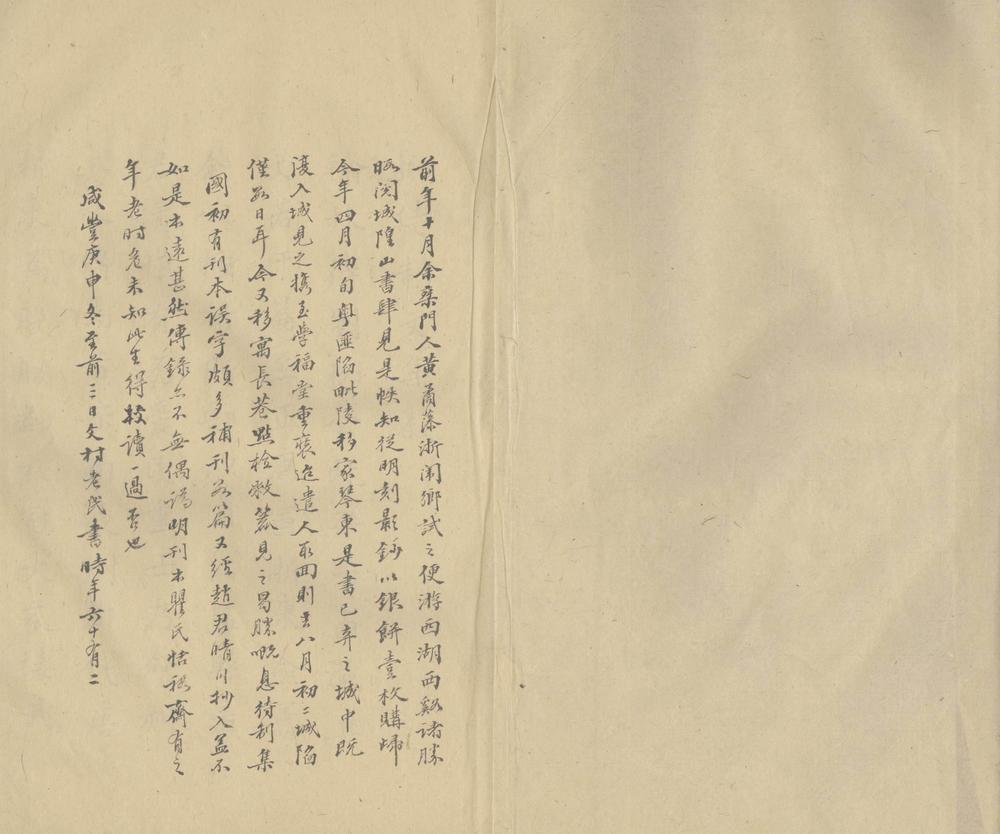 前年十月余率門人黃喬蔭浙闈鄉試之便游西湖西谿諸勝
暇閱城隍山書肆見是帙知從明刻影鈔以銀餅壹枚購歸
今年四月初旬粵匪陷毗陵移家琴東是書已棄之城中旣
復入城見之攜至學福堂重裝迨遣人取回則至八月初二城陷
僅數日耳今又移寓長巷點檢敝簏見之曷勝嘅息待制集
國初有刊本誤字頗多補刊數篇又經趙君晴川抄入益不
如是本遠甚然傳錄亦不無偶譌明刊本瞿氏恬裕齋有之
年老時危未知此生得校讀一過否也
咸豐庚申冬至前三日文村老民書時年六十有二